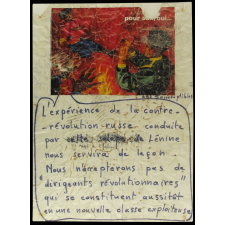 pour
L'expérience de la contre-
révolution russe conduite
par cette de Lénine
nous servira de leçon
"Nous n'accepterons pas de
"dirigeants révolutionnaires"
qui se constituent aussitôt
en une nouvelle classe exploiteuse